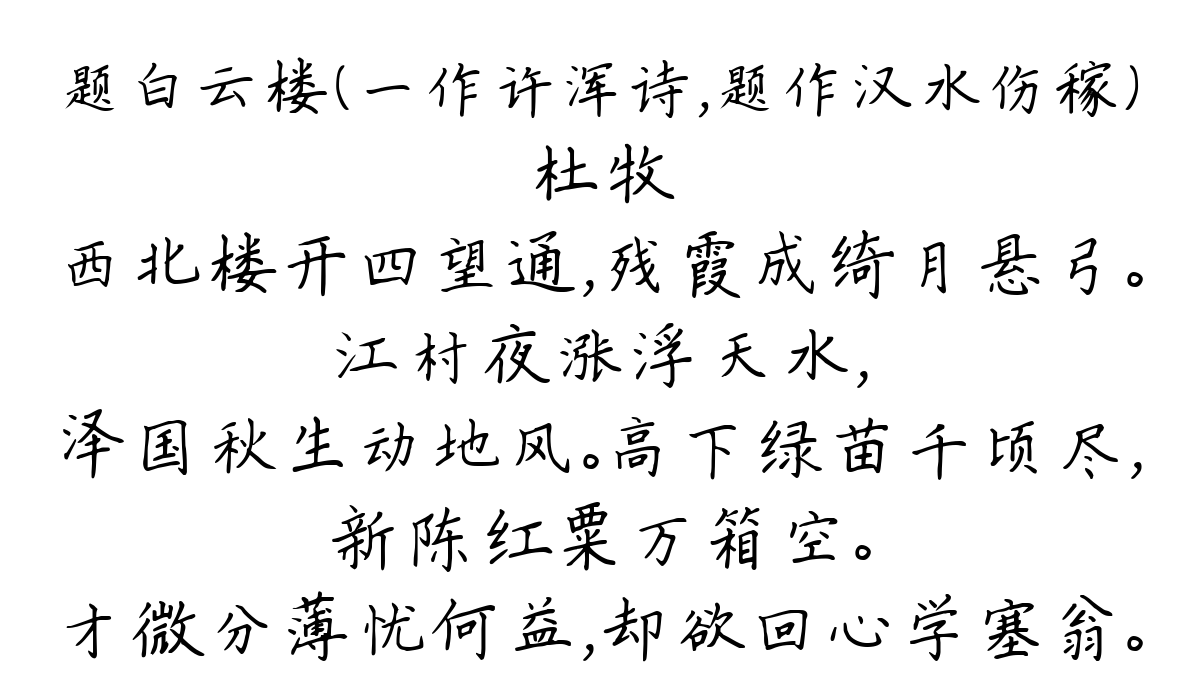 题白云楼(一作许浑诗,题作汉水伤稼)
杜牧
西北楼开四望通,残霞成绮月悬弓。
江村夜涨浮天水,
泽国秋生动地风。高下绿苗千顷尽,
新陈红粟万箱空。
才微分薄忧何益,却欲回心学塞翁。